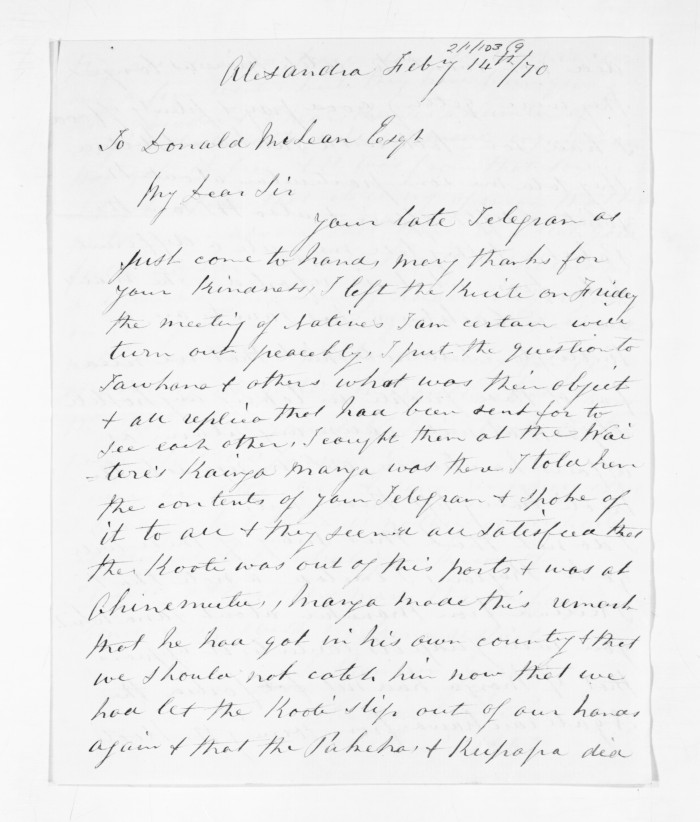 2/1/103/9
Alexandra Feby 14th/70
To Donald McLean Esqr
My Dear Sir
your late Telegram as
just come to hand, many thanks for
your kindness, I left the Kuiti on Friday
the meeting of Natives I am certain will
turn out peacebly, I put the question to
Tawhana & others what was their object
& all replied that had been sent for to
see each other, I caught them at the Wai
=tere's Kainga Manga was there I told him
the contents of your Telegram & spoke of
it to all & they seem'd all satisfied that
the Kooti was out of this parts & was at
Ohinemutu, Manga made this remark
that he had got in his own county & that
we should not catch him now that we
had let the Kooti slip out of our hands
again & that the Pakehas & Kupapa did